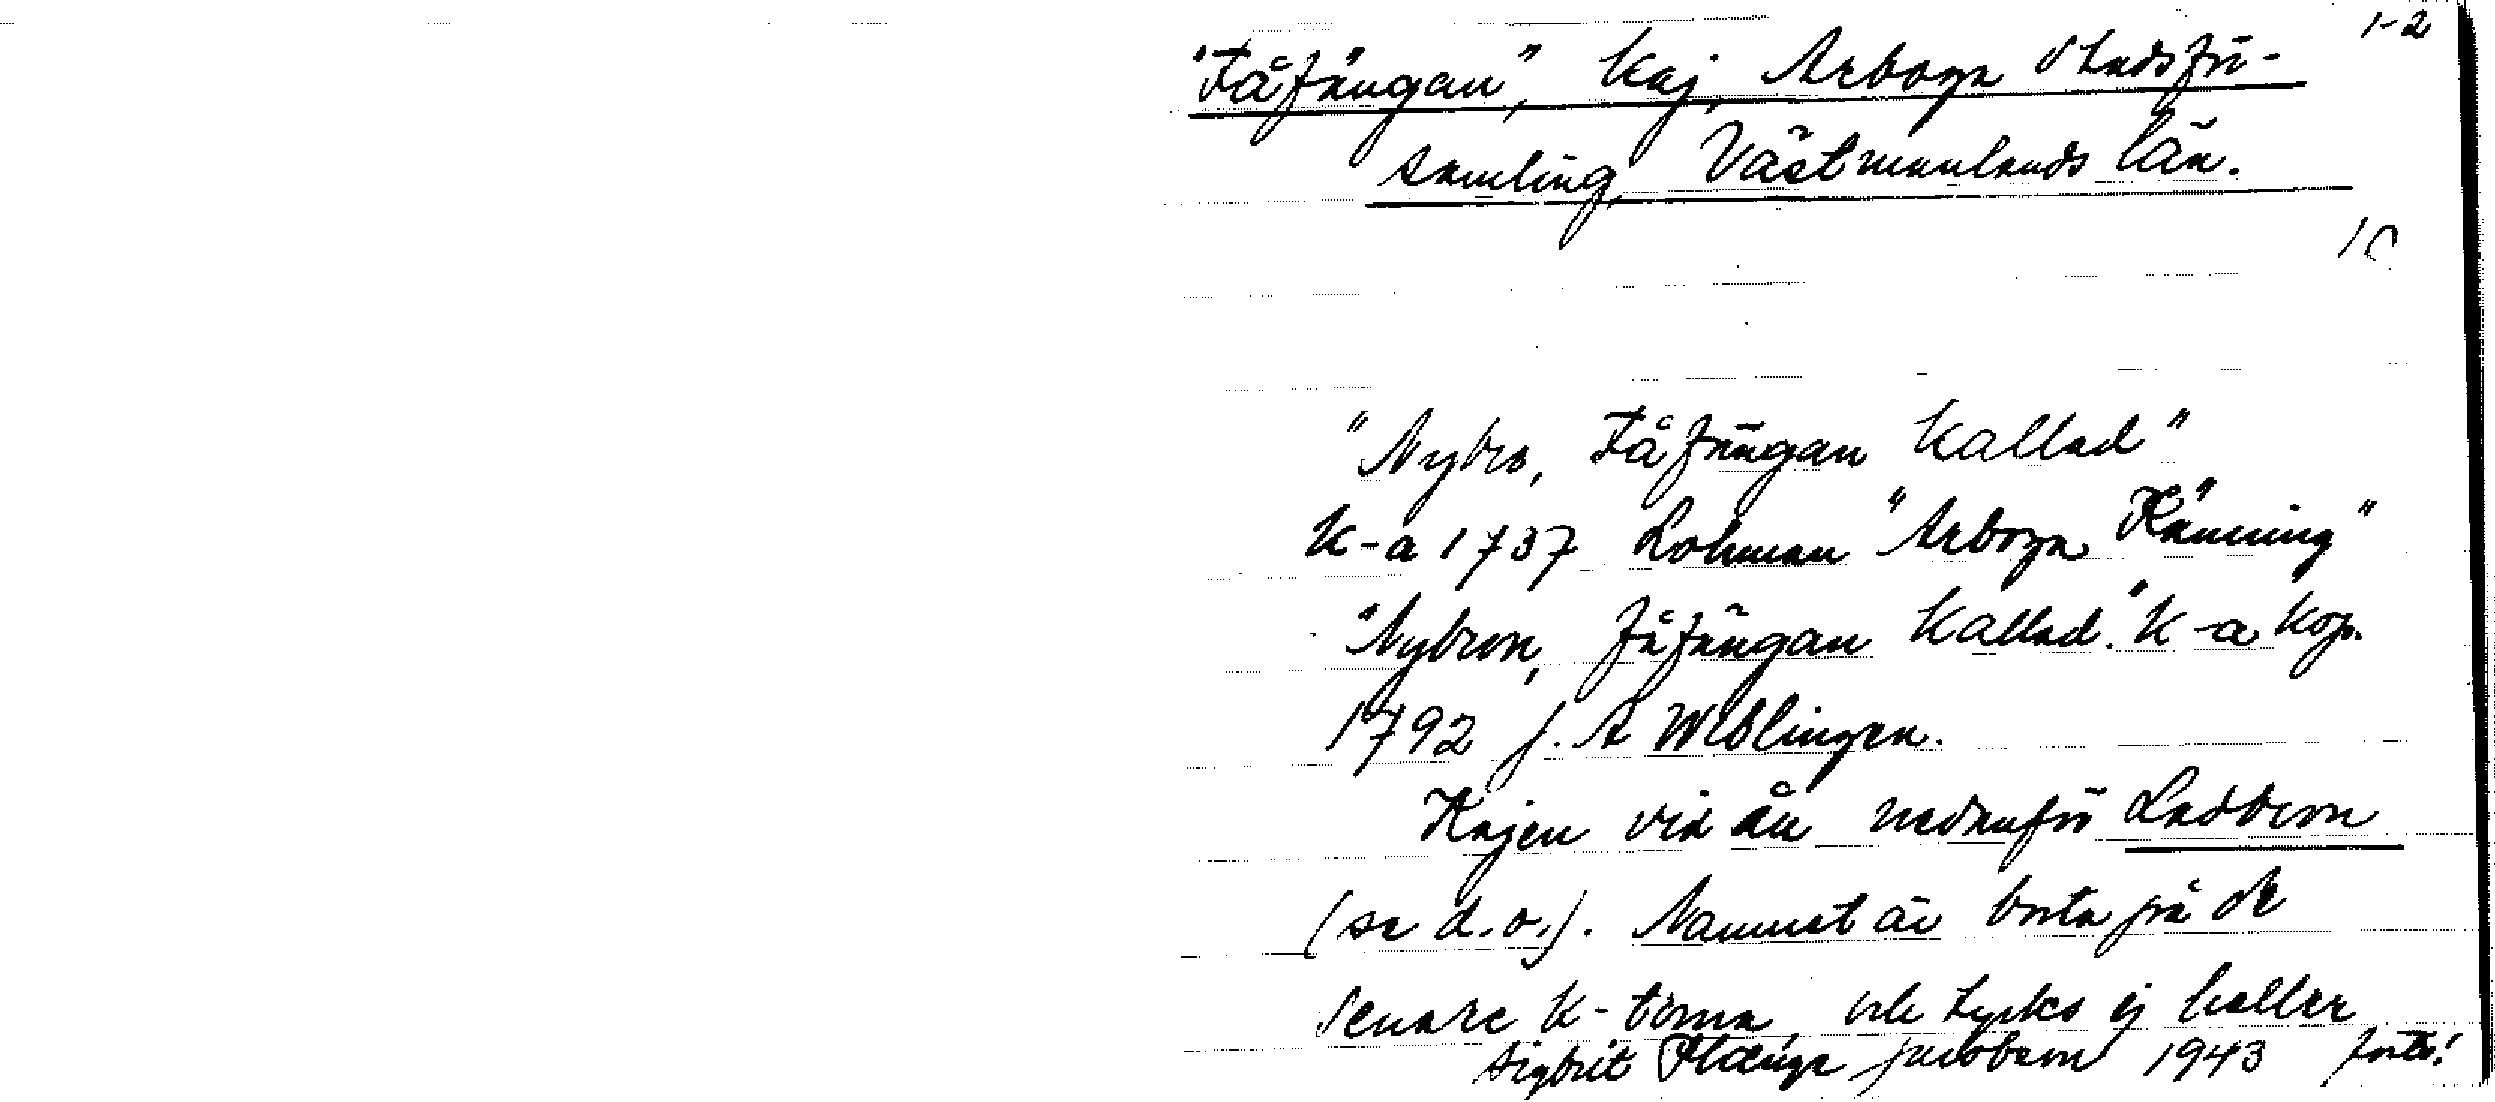 1-2
"Fåfängan", kaj, Arboga stadsför-
samling, Västmanlands län.
"Nybro, Fåfängan kallad"
K-a 1737 Lohman "Arboga Känning"
"Nybron, fåfängan kallad." K-a kop.
1792 f. A Weblingen.
Kajen vid ån nedanför Ladbron
(se d.o.). Namnet är borta på de
senare k-torna, och tycks ej heller
Sigbrit Plænge Jacobson 1943 forts!